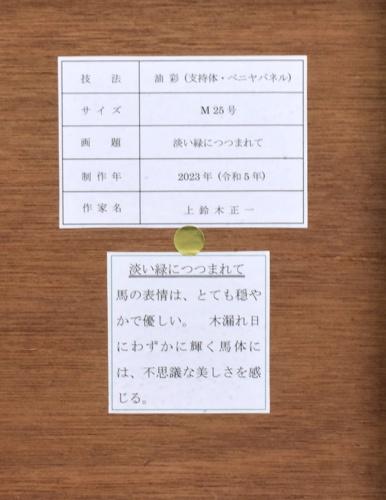 技法 油彩 (支持体・ベニヤパネル)
サイズ M 25 号
画題 淡い緑につつまれて
制作年 2023 年 (令和 5 年)
作家名 上鈴木正一
淡い緑につつまれて
馬の表情は、とても穏や
かで優しい。 木漏れ日
にわずかに輝く馬体に
は、不思議な美しさを感
じる。